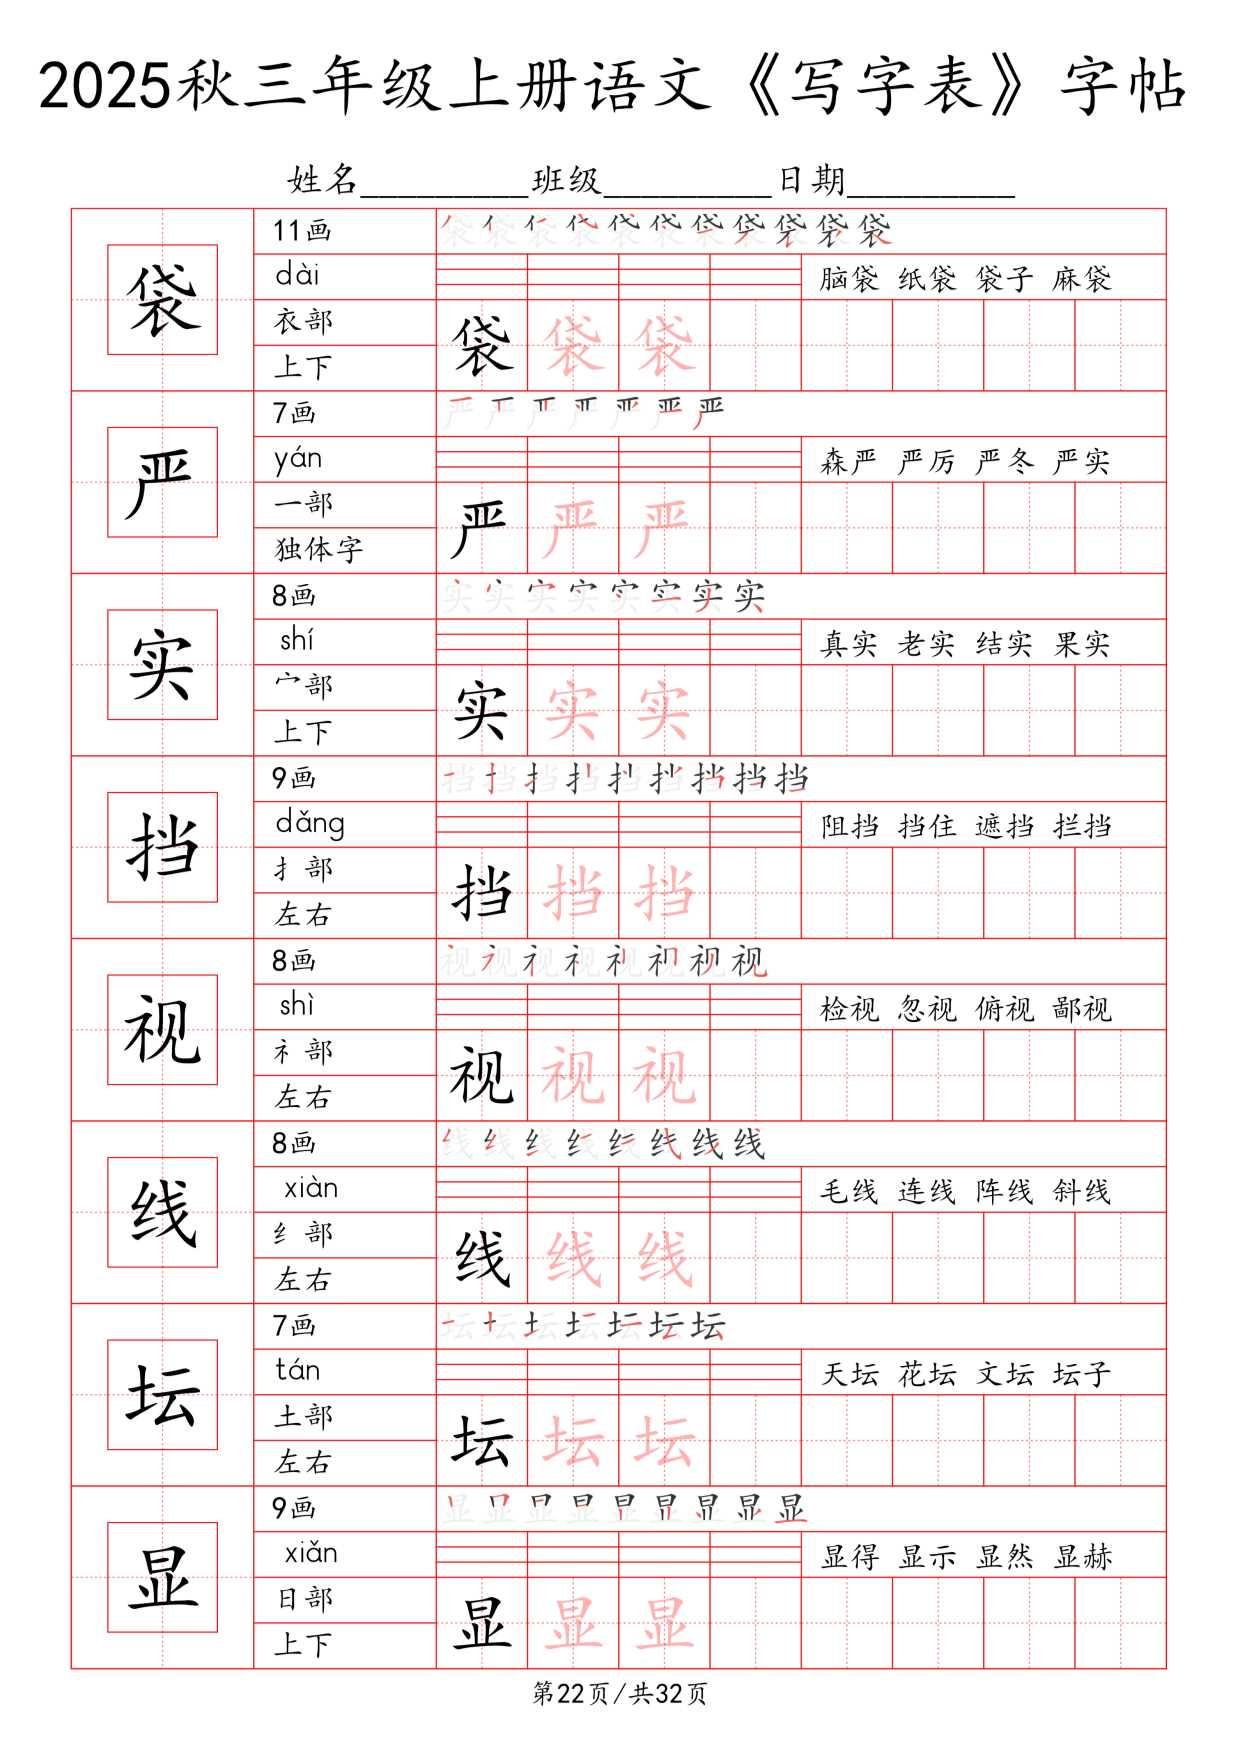 2025秋三年级上册语文《写字表》字帖
姓名__________班级__________日期__________
袋
11画
dài
脑袋 纸袋 袋子 麻袋
衣部
袋 袋 袋
上下
严
7画
yán
森严 严厉 严冬 严实
一部
严 严 严
独体字
实
8画
shí
真实 老实 结实 果实
宀部
实 实 实
上下
挡
9画
dǎng
阻挡 挡住 遮挡 拦挡
扌部
挡 挡 挡
左右
视
8画
shì
检视 忽视 俯视 鄙视
礻部
视 视 视
左右
线
8画
xiàn
毛线 连线 阵线 斜线
纟部
线 线 线
左右
坛
7画
tán
天坛 花坛 文坛 坛子
土部
坛 坛 坛
左右
显
9画
xiǎn
显得 显示 显然 显赫
日部
显 显 显
上下
第22页/共32页